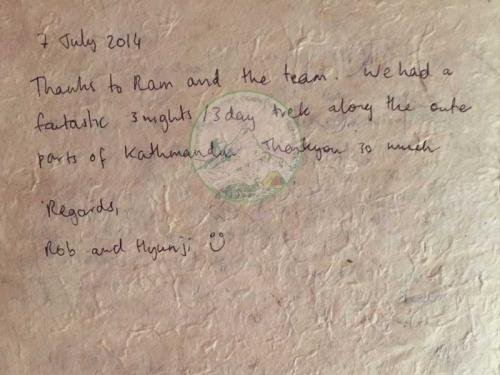 7 July 2014
Thanks to Ram and the team. We had a
fantastic 3 nights / 3 day trek along the outer
parts of Kathmandu. Thankyou so much
Regards,
Rob and Hyunji